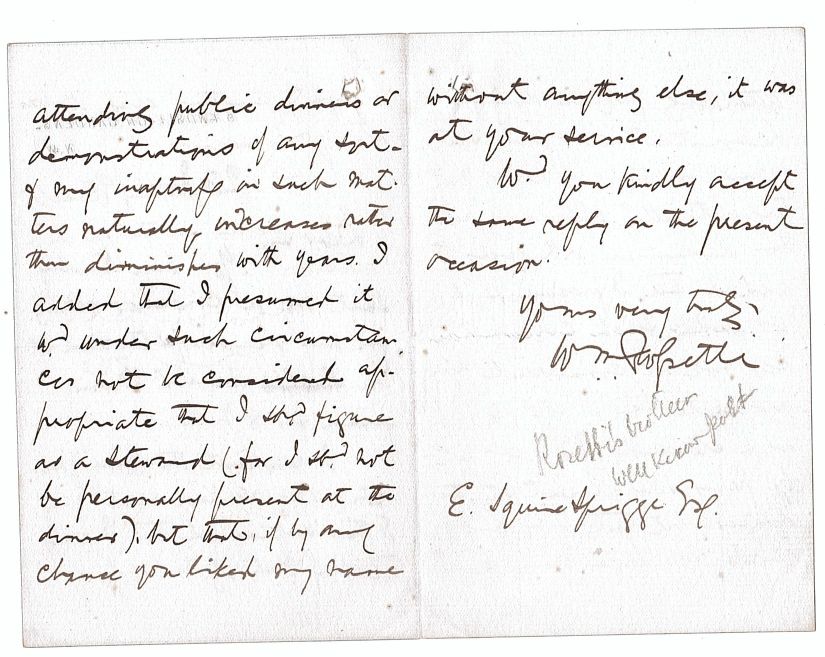 attending public dinners or
demonstrations of any sort -
& my inaptness in such mat-
ters naturally increases rather
than diminishes with years. I
added that I presumed it
wd. under such circumstan-
ces not be considered ap-
propriate that I shd. figure
as a Steward (for I shd. not
be personally present at the
dinner), but that, if by any
chance you liked my name
without anything else, it was
at your service.
Wd. you kindly accept
the same reply on the present
occasion.
Yours very truly,
W M Rossetti
Rosettis brother
well known poet
E. Squire Sprigge Esq.